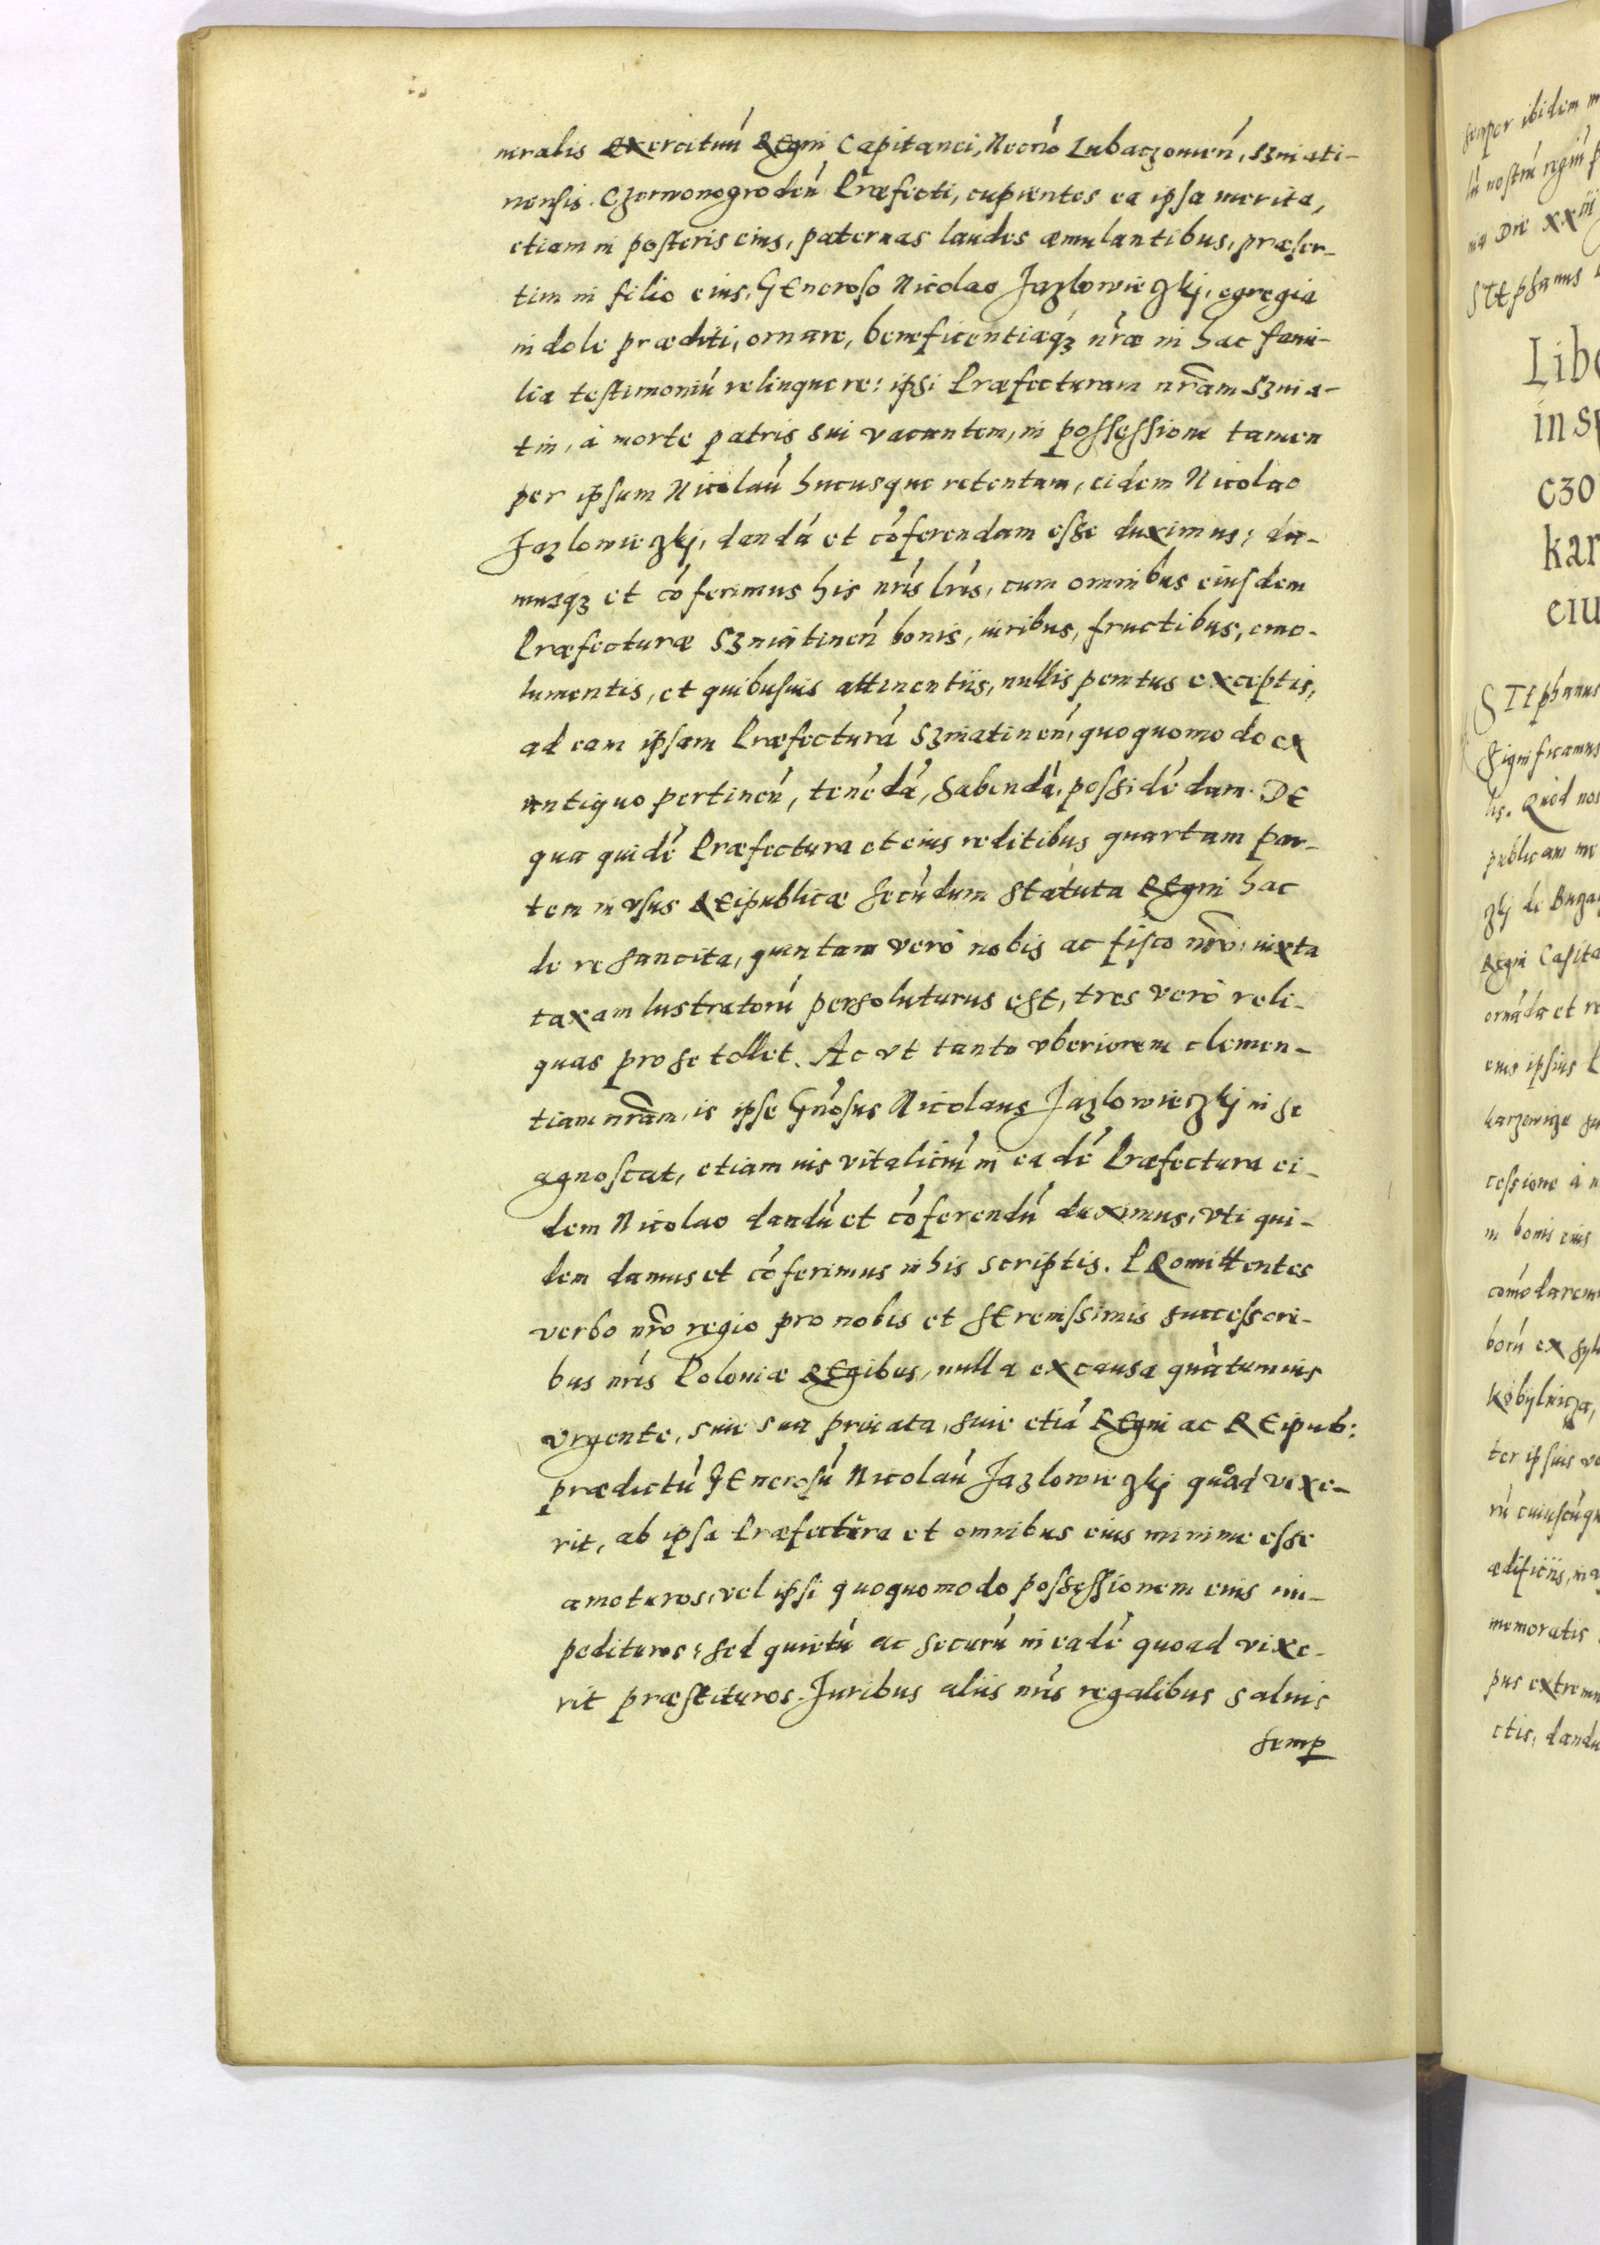 neralis exercituú REgni Capitanei, Necnó Lubaczouień, Szniati-
nensis. Czerwonogrodeń Præfecti, cupientes ea ipsa merita,
etiam in posteris eius, paternas laudes æmulantibus, præser-
tim in filio eius, GEneroso Nicolao Jazlowieczkj, egregia
indole præditi, ornare, beneficentiæq3 nr̃æ in hac fami-
lia testimoniú relinquere: ipsi Præfecturam nr̃am Sznia-
tin, à morte patris sui vacantem, in possessione tamen
per ipsum Nicolaú hucusque retentam, eidem Nicolao
Jazlowieczkj, dandá et cóferendam esse duximus; da-
musq3 et cóferimus his nr̃is lr̃is, cum omnibus eiusdem
Præfecturæ Szniatineń bonis, iuribus, fructibus, emo-
lumentis, et quibusuis attinentiis, nullis penitus exceptis,
ad eam ipsam Præfecturá Szniatineń, quoquomodo ex
antiquo pertineń, tenédá, habendá, possidédam. DE
qua quidé Præfectura et eius reditibus quartam par-
tem in vsus REipublicæ secúdum Statuta REgni hac
de re sancita, quintam verò nobis ac fisco nr̃o, iuxta
taxam lustratorú persoluturus est, tres verò reli-
quas pro se tollet. Ac vt tanto vberiorem clemen-
tiam nr̃am, is ipse Gńosus Nicolaus Jazlowieczkj in se
agnoscat, etiam ius vitalitiú in eadé Præfectura ei-
dem Nicolao dandú et cóferendú duximus, vti qui-
dem damus et cóferimus in his scriptis. PRomittentes
verbo nr̃o regio pro nobis et SErenissimis successori-
bus nr̃is Poloniæ REgibus, nulla ex causa quátumuis
vrgente, siue sua priuata, siue etiá REgni ac REipub:
prædictú GEnerosú Nicolaú Jazlowieczkj quoad vixe-
rit, ab ipsa Præfectura et omnibus eius minime esse
amoturos, vel ipsi quoquomodo possessionem eius im-
pedituros: sed quietú ac securú in eadé quoad vixe-
rit præstituros. Juribus aliis nr̃is regalibus saluis
semp
semper ibidem
nostrú regni
Die XXiii
STEphanus
Lib
in s
czo
kar
eiu
STEphanus
Significamus
lis. Quod nos
publicam me
zkj de Buza
REgni Capita
ornáda et re
eius ipsius
cessione à
in bonis eius
cómodarem
ború ex syl
Kobylnicza,
ter ipsius vo
rú cuiuscúqu
ædificiis, in
memoratis
pus extrem
ctis, dandu